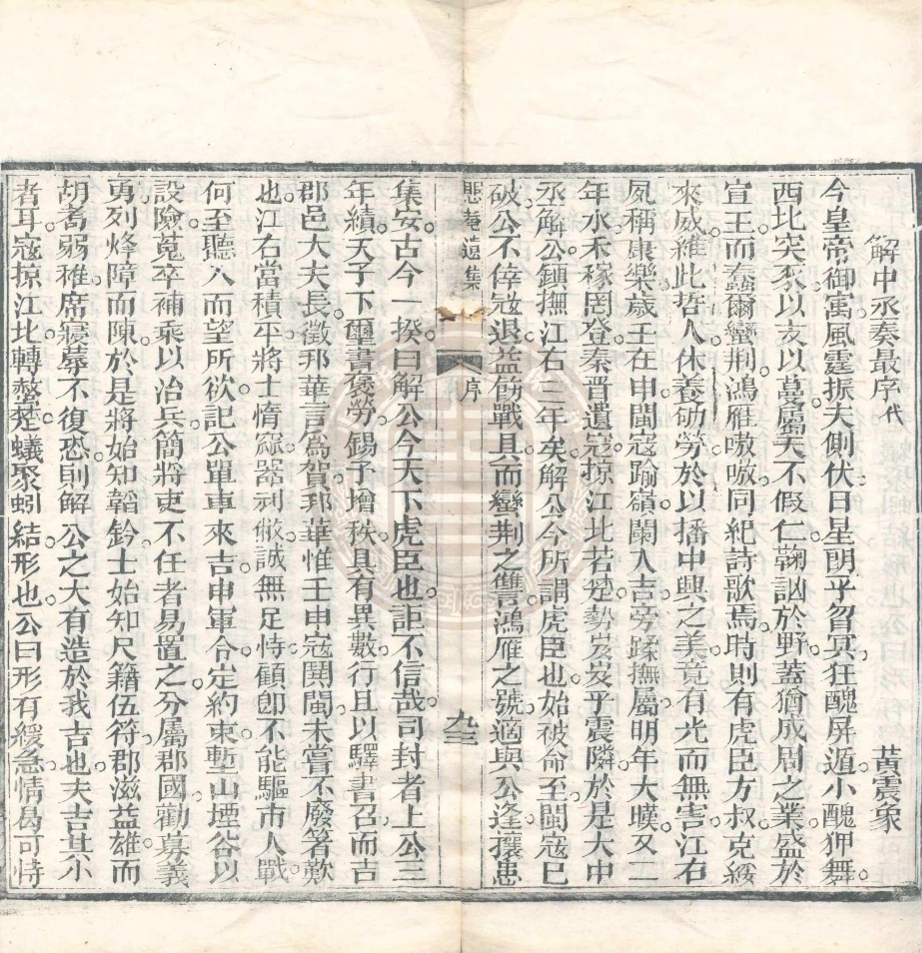 解中丞奏最序代
黃震象
今皇帝御寓風霆振夫側伏日星朗乎曶冥狂醜屏遁小醜狎舞
西北突豕以亥以蔓屬天不假仁鞠訩於野蓋猶成周之業盛於
宣王而蠢爾蠻荆鴻雁嗷嗷同紀詩歌焉時則有虎臣方叔克綏
來威維此哲人休養劬勞於以播中興之美竟有光而無害江右
夙稱康樂歲壬在申閩寇踰嶺闌入吉旁蹂撫屬明年大暵又二
年水禾稼罔登秦晉遺寇掠江北若楚勢岌岌乎震隣於是大中
丞解公鎮撫江右三年矣解公今所謂虎臣也始被命至閩寇已
破公不倖寇退益飭戰具而蠻荆之讐鴻雁之號適與公逢攘患
恥菴遺集
序
九三
集安古今一揆曰解公今天下虎臣也詎不信哉司封者上公三
年績天子下璽書褒勞錫予增秩具有異數行且以驛書召而吉
郡邑大夫長徵邦華言爲賀邦華惟壬申寇閧閩未嘗不廢箸歎
也江右當積平將士惰窳器利傲誠無足恃顧卽不能驅市人戰
何至聽人而望所欲記公單車來吉申軍令定約束塹山堙谷以
設險蒐卒補乘以治兵簡將吏不任者易置之分屬郡國勸募義
勇列烽障而陳於是將始知韜鈐士始知尺籍伍符郡滋益雄而
胡耇弱稚席寢蓐不復恐則解公之大有造於我吉也夫吉其小
者耳寇掠江北轉螫楚蟻聚蚓結形也公曰形有緩急情曷可恃